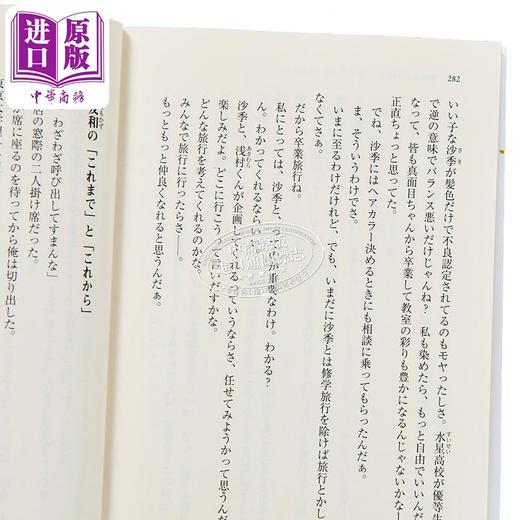 进口
原版
中華商務
282
いい子な沙季が髪色だけで不良認定されてるのもモヤったしさ。水星高校が優等生
で逆の意味でバランス悪いだけじゃんね? 私も染めたら、もっと自由でいいんだ
なって、皆も真面目ちゃんから卒業して教室の彩りも豊かになるんじゃないかなー
正直ちょっと思ってた。
でね、沙季にはヘアカラー決めるときにも相談に乗ってもらったんだぁ。
ま、そういうわけでさ。
いまに至るわけだけれど、でも、いまだに沙季とは修学旅行を除けば旅行とかし
なくてさぁ。
だから卒業旅行ね。
私にとっては、沙季と、が重要なわけ。わかる?
ん。わかってくれるならい
沙季と、浅村くんが企画してくれるっていうならさ、任せてみようかって思うんだ
楽しみだよ。どこに行こうって言いだすかな。
どんな旅行を考えてくれるのかな。
みんなで旅行に行ったらさ――。
もっともっと仲良くなれると思うんだぁ。
友和の「これまで」と「これから」
わざわざ呼び出してすまんな」
店の窓際の二人掛け席だった。
が席に座るのを待ってから俺は切り出した。